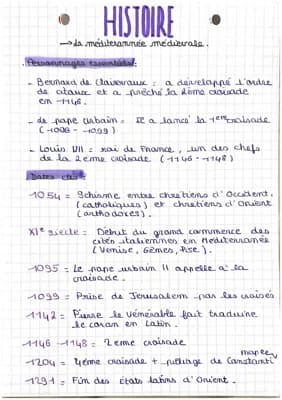 HISTOIRE
→ la méditerrannée médiévale.
Personnages essentiels :
- Bernard de Clairvaux : a développé l'ordre
de citaux et a prêché la 2ème croisade
en 1146.
- Le pape Urbain II a lancé la 1ère croisade
(1096 - 1099)
- Louis VII = roi de France, un des chefs
de la 2eme croisade (1146 - 1148)
Dates clés
1054 = Schisme entre chrétiens d'Occident.
(catholiques) et chrétiens d'Orient
(orthodoxes).
XIe siècle = Début du grand commerce des
cités italiennes en Méditerranée
(Venise, Gênes, Pise).
1095 = Le pape urbain II appelle à la
croisade.
1099 = Prise de Jerusalem par les croisés
1142 = Pierre le Vénérable fait traduire
le coran en Latin.
1146 - 1148 = 2 eme croisade
1204 = 4ème croisade + pillage de Constanti
nople
1291 = Fin des états latins d'Orient.